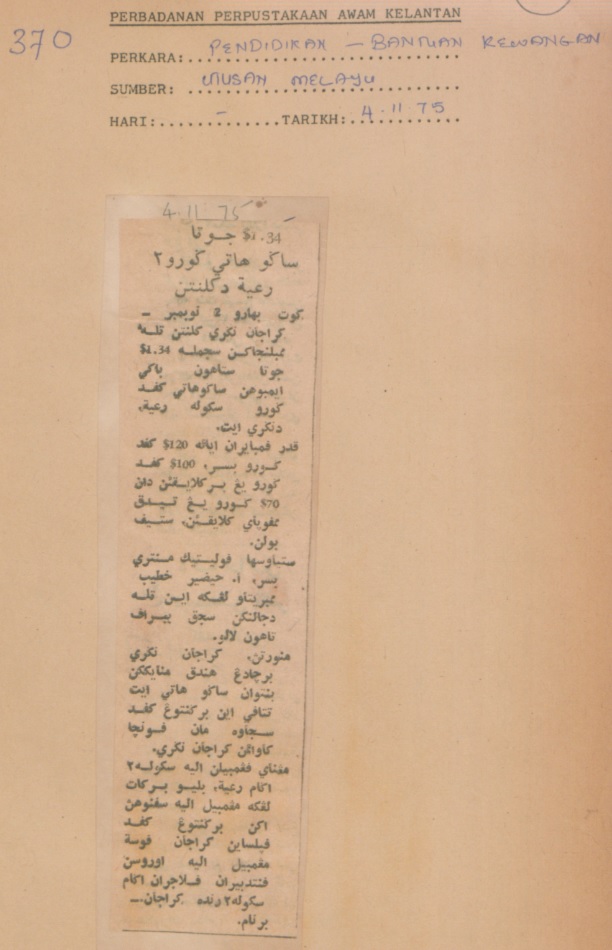 PERBADANAN PERPUSTAKAAN AWAM KELANTAN
370
PERKARA: PENDIDIKAN – BANTUAN KEWANGAN
SUMBER: UTUSAN MELAYU
HARI: - TARIKH: 4.11.75
4.11.75
$1.34 جوتا
ساݢو هاتي ݢورو٢
رعية دکلنتن
کوت بهارو 2 نوبمبر ـ
کراجأن نݢري کلنتن تله
ممبلنجاکن سجمله $1.34
جوتا ستاهون باݢي
ايمبوهن ساݢوهاتي کڤد
ݢورو سکوله رعية،
دنݢري ايت.
قدر ڤمبايران اياله $120 کڤد
ݢورو بسر، $100 کڤد
ݢورو يڠ برکلايقن دان
$70 ݢورو يڠ تيدق
ممڤوياٴي کلايقن، ستيڤ
بولن.
ستياوسها ڤوليتيک منتري
بسر، ا. حيضير خطيب
ممبريتاو لڠکه اين تله
دجالنکن سجق ببراڤ
تاهون لالو.
منورتڽ، کراجأن نݢري
برچادڠ هندق منايککن
بنتوان ساݢو هاتي ايت
تتاڤي اين برݢنتوڠ کڤد
سجاوه مان ڤونچا
کاواڠن کراجأن نݢري.
مڠناٴي ڤڠمبيلن اليه سکوله٢
اݢام رعية، بلياو برکات
لڠکه مڠمبيل اليه سڤنوهڽ
اکن برݢنتوڠ کڤد
ڤيلساين کراجأن ڤوسة
مڠمبيل اليه اوروسن
ڤنتدبيران ڤلاجرن اݢام
سکوله٢ رنده کراجأن.ــ
برنام.